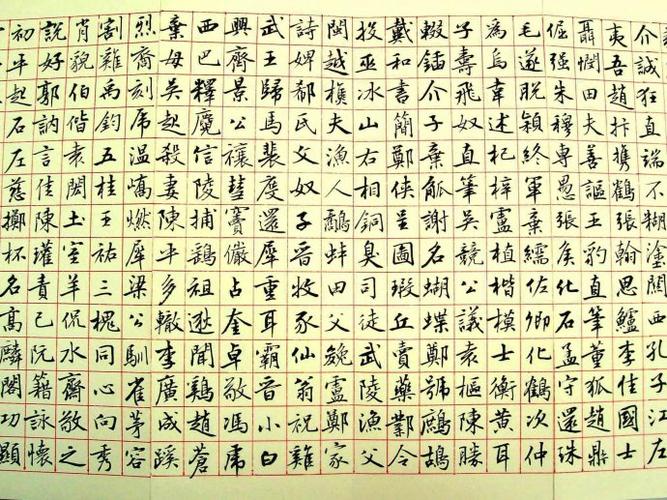 介誠狂直端不糊塗關西孔子江左
夷吾趙抃攜鶴張翰思鱸李佳國士
聶憫田夫善謳王豹直筆董狐趙鼎
倔強朱穆專愚張矦化石孟守還珠
毛遂脫穎終軍棄繻佐卿化鶴次仲
為烏韋述杞梓盧植楷模士衡黃耳
子壽飛奴直筆吳競公議袁樞陳勝
輟鍤介子棄觚謝名蝴蝶鄭號鷓鴣
戴和書簡鄭俠呈圖瑕丘賣藥鄴令
投巫冰山右相銅臭司徒武陵漁父
閩越樵夫漁人鷸蚌田父㕙盧鄭家
詩婢郗氏父奴子晉牧豕仙翁祝雞
武王歸馬裴度還犀重耳霸晉小白
興齊景公禳彗竇儼占奎卓敬馮虎
西巴釋魔信陵捕鷂祖逖聞鷄趙蒼
棄母吳起殺妻陳平多轍李廣成蹊
烈裔刻虎溫嶠燃犀梁公馴雀茅容
割雞禹鈞五桂王祐三槐同心向秀
肖貌伯偕袁閎土室羊侃水齋敬之
說好郭訥言佳陳瓘責己阮籍詠懷
初平起石左慈擲杯名高麟閣功顯